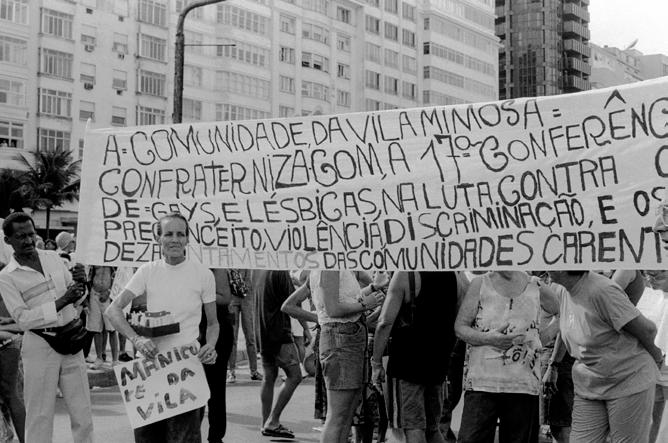 A=COMUNIDADE, DA VILA MIMOSA =
CONFRATERNIZA COM, A 17ª CONFERÊNC
DE=GAYS, E LÉSBICAS, NA LUTA CONTRA O
PRECONCEITO, VIOLÊNCIA, DISCRIMINAÇÃO, E OS
DEZABANTAMENTOS DAS COMUNIDADES CARENT
MANICU
RE DA
VILA